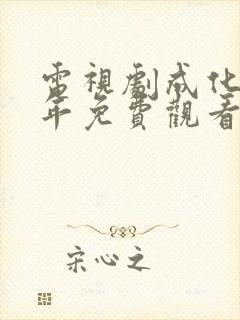 電視劇成化
年免費觀看
宋心之